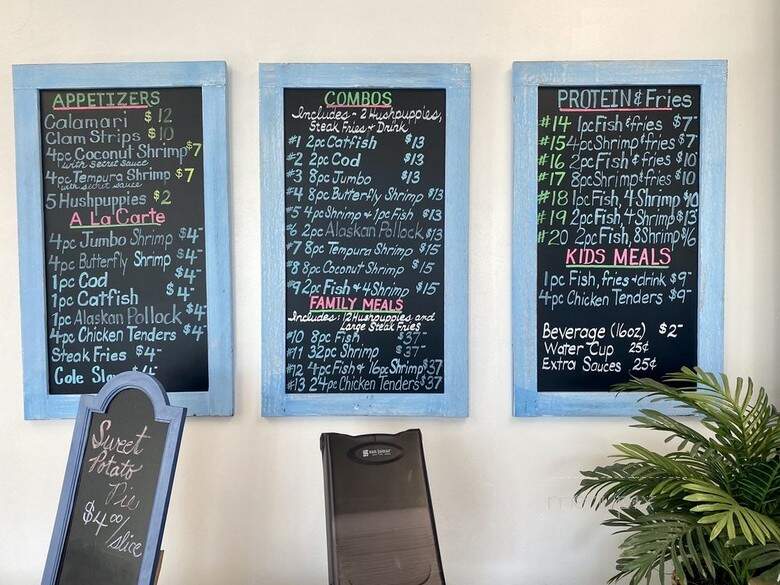 APPETIZERS
Calamari $12
Clam Strips $10
4pc Coconut Shrimp $7
with secret sauce
4pc Tempura Shrimp $7
with secret sauce
5 Hushpuppies $2
A La Carte
4pc Jumbo Shrimp $4-
4pc Butterfly Shrimp $4-
1pc Cod $4-
1pc Catfish $4-
1pc Alaskan Pollock $4-
4pc Chicken Tenders $4-
Steak Fries $4-
Cole
Sweet
Potato
Pie
$4.00
/slice
COMBOS
Includes - 2 Hushpuppies,
Steak Fries & Drink
#1 2pc Catfish $13
#2 2pc Cod $13
#3 8pc Jumbo $13
#4 8pc Butterfly Shrimp $13
#5 4pc Shrimp & 1pc Fish $13
#6 2pc Alaskan Pollock $13
#7 8pc Tempura Shrimp $15
#8 8pc Coconut Shrimp $15
#9 2pc Fish & 4 Shrimp $15
FAMILY MEALS
Includes: 12 Hushpuppies and
Large Steak Fries
#10 8pc Fish $37
#11 32pc Shrimp $37
#12 4pc Fish & 16pc Shrimp $37
#13 24pc Chicken Tenders $37
PROTEIN & Fries
#14 1pc Fish & fries $7
#15 4pc Shrimp & fries $7
#16 2pc Fish & fries $10
#17 8pc Shrimp & fries $10
#18 1pc Fish, 4 Shrimp $10
#19 2pc Fish, 4 Shrimp $13
#20 2pc Fish, 8 Shrimp $16
KIDS MEALS
1pc Fish, fries & drink $9-
4pc Chicken Tenders $9-
Beverage (16oz) $2-
Water Cup 25¢
Extra Sauces 25¢